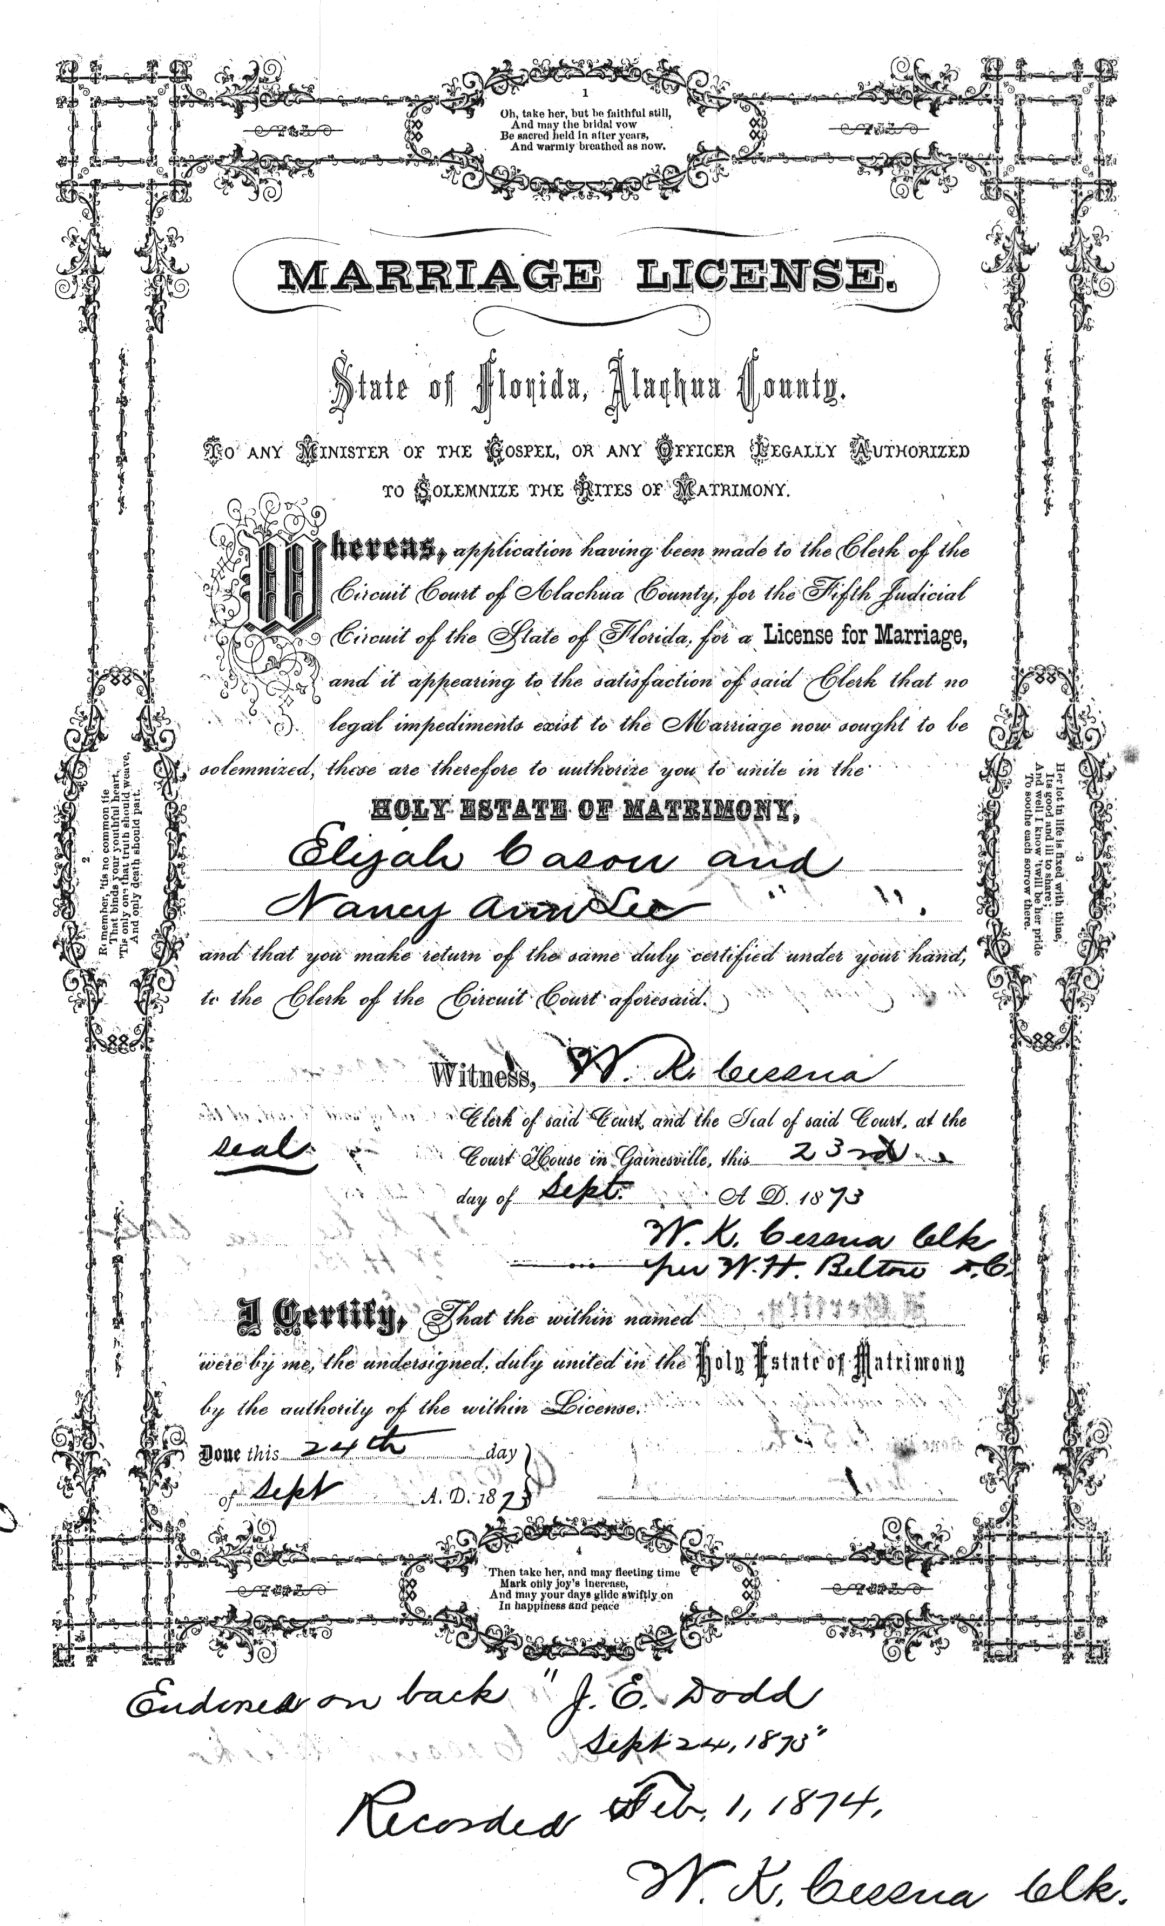 1
Oh, take her, but be faithful still,
And may the bridal vow
Be sacred held in after years,
And warmly breathed as now.
MARRIAGE LICENSE.
State of Florida, Alachua County.
To any Minister of the Gospel, or any Officer Legally Authorized
to Solemnize the Rites of Matrimony.
Whereas, application having been made to the Clerk of the
Circuit Court of Alachua County, for the Fifth Judicial
Circuit of the State of Florida, for a License for Marriage,
and it appearing to the satisfaction of said Clerk that no
legal impediments exist to the Marriage now sought to be
solemnized, these are therefore to authorize you to unite in the
HOLY ESTATE OF MATRIMONY,
Elijah Cason and
Nancy Ann Lee " ".
and that you make return of the same duly certified under your hand,
to the Clerk of the Circuit Court aforesaid.
Witness, W. K. Cessna
Clerk of said Court, and the Seal of said Court, at the
seal
Court House in Gainesville, this 23rd
day of Sept. A. D. 1873
W. K. Cessna Clk
per W. H. Belton D.C.
I Certify, That the within named
were by me, the undersigned, duly united in the Holy Estate of Matrimony
by the authority of the within License.
Done this 24th day
of Sept A. D. 1873
2
Remember, 'tis no common tie
That binds your youthful heart,
'Tis only one that truth should weave,
And only death should part.
3
Her lot in life is fixed with thine,
Its good and ill to share;
And well I know 'twill be her pride
To soothe each sorrow there.
4
Then take her, and may fleeting time
Mark only joy's increase,
And may your days glide swiftly on
In happiness and peace
Endorsed on back "J. E. Dodd
Sept 24, 1873"
Recorded Feb. 1, 1874.
W. K. Cessna Clk.